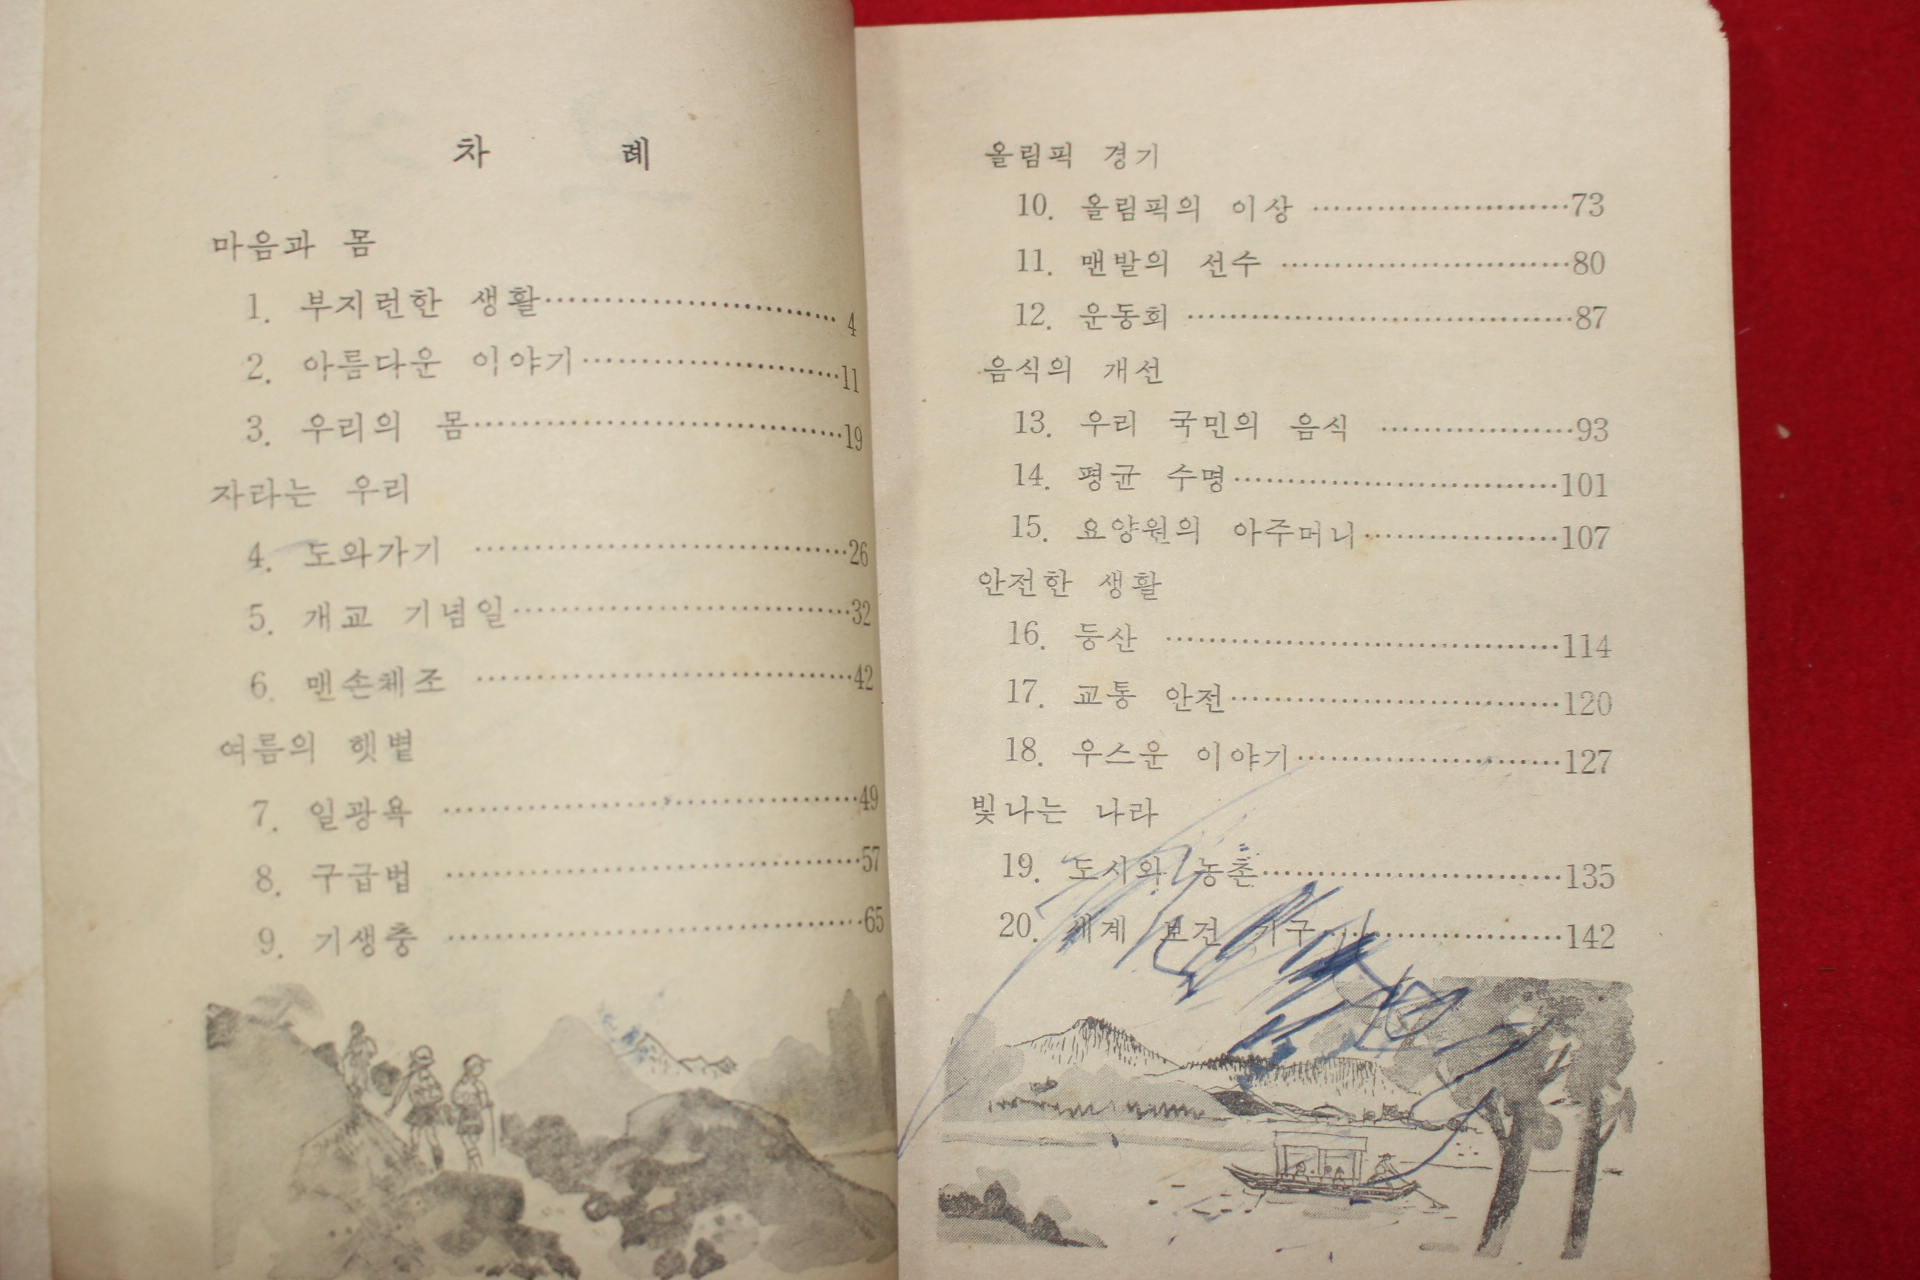 차 례
마음과 몸
1. 부지런한 생활 4
2. 아름다운 이야기 11
3. 우리의 몸 19
자라는 우리
4. 도와가기 26
5. 개교 기념일 32
6. 맨손체조 42
여름의 햇볕
7. 일광욕 49
8. 구급법 57
9. 기생충 65
올림픽 경기
10. 올림픽의 이상 73
11. 맨발의 선수 80
12. 운동회 87
음식의 개선
13. 우리 국민의 음식 93
14. 평균 수명 101
15. 요양원의 아주머니 107
안전한 생활
16. 등산 114
17. 교통 안전 120
18. 우스운 이야기 127
빛나는 나라
19. 도시와 농촌 135
20. 세계 보건 기구 142